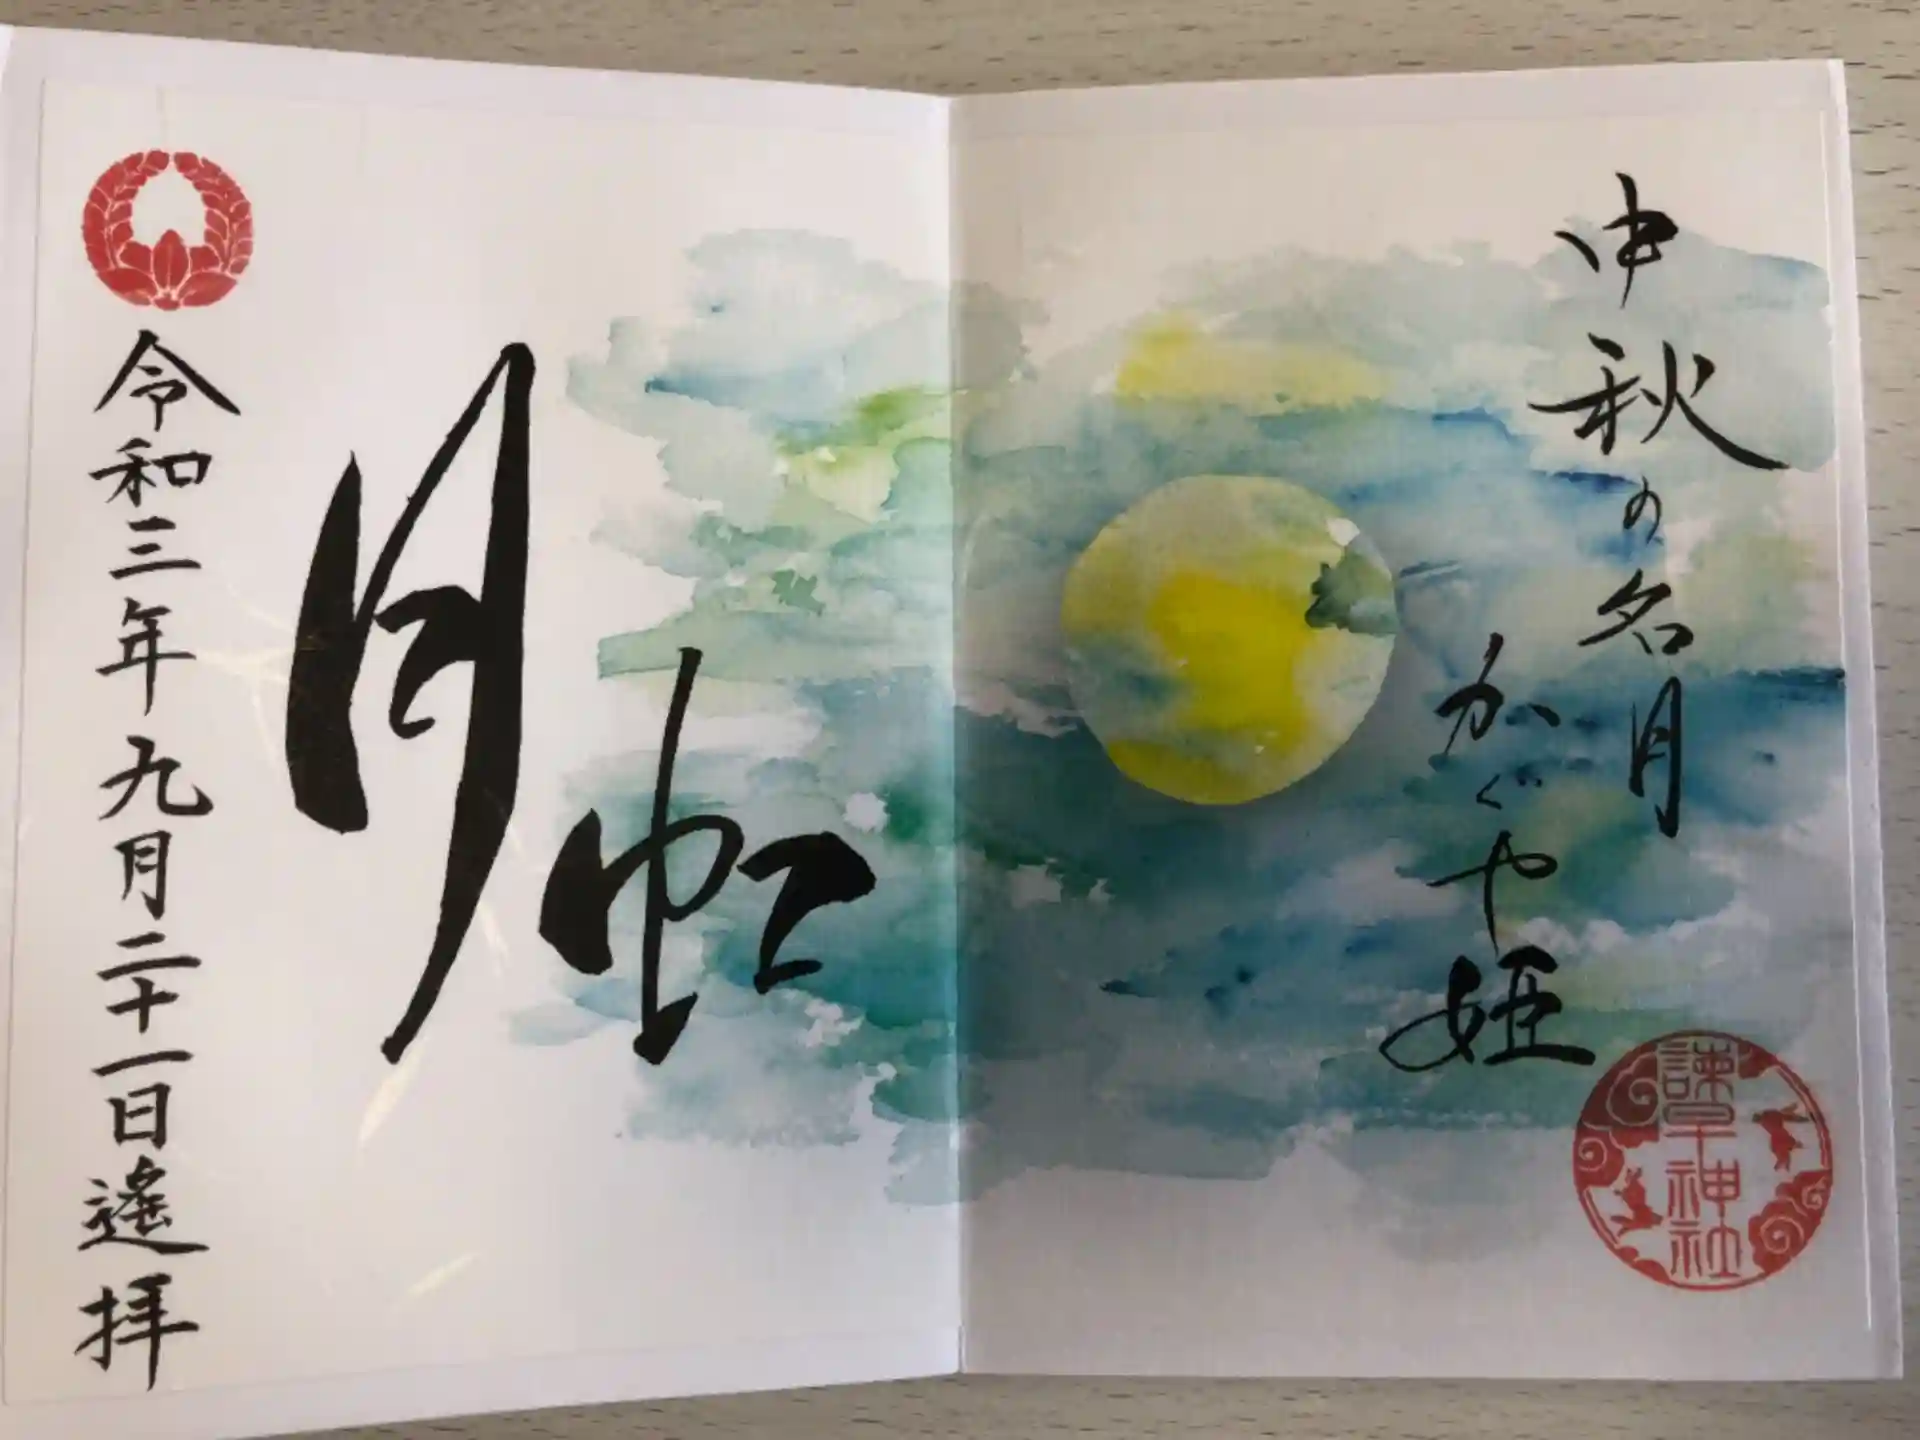 中秋の名月
かぐや姫
諫早神社
月虹
令和三年九月二十一日遙拝